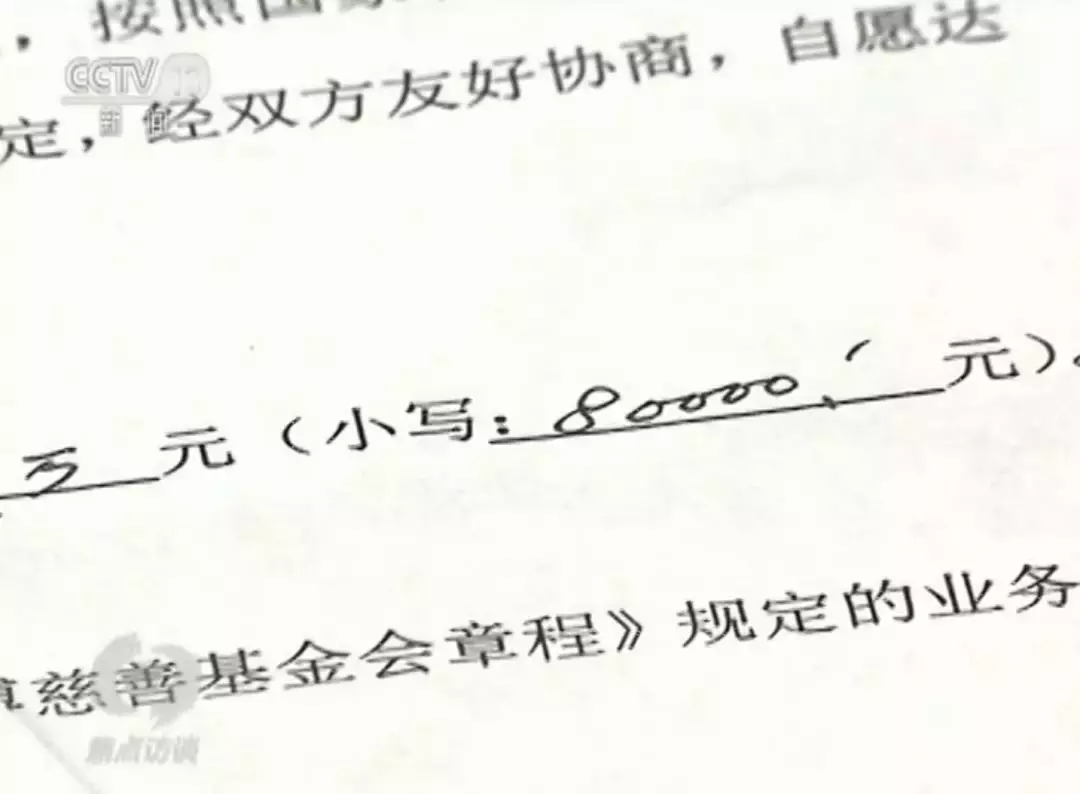 ，按照国
CCTV 13
新闻
定，经双方友好协商，自愿达
万元（小写：80000元）。
慈善基金会章程》规定的业务
焦点访谈